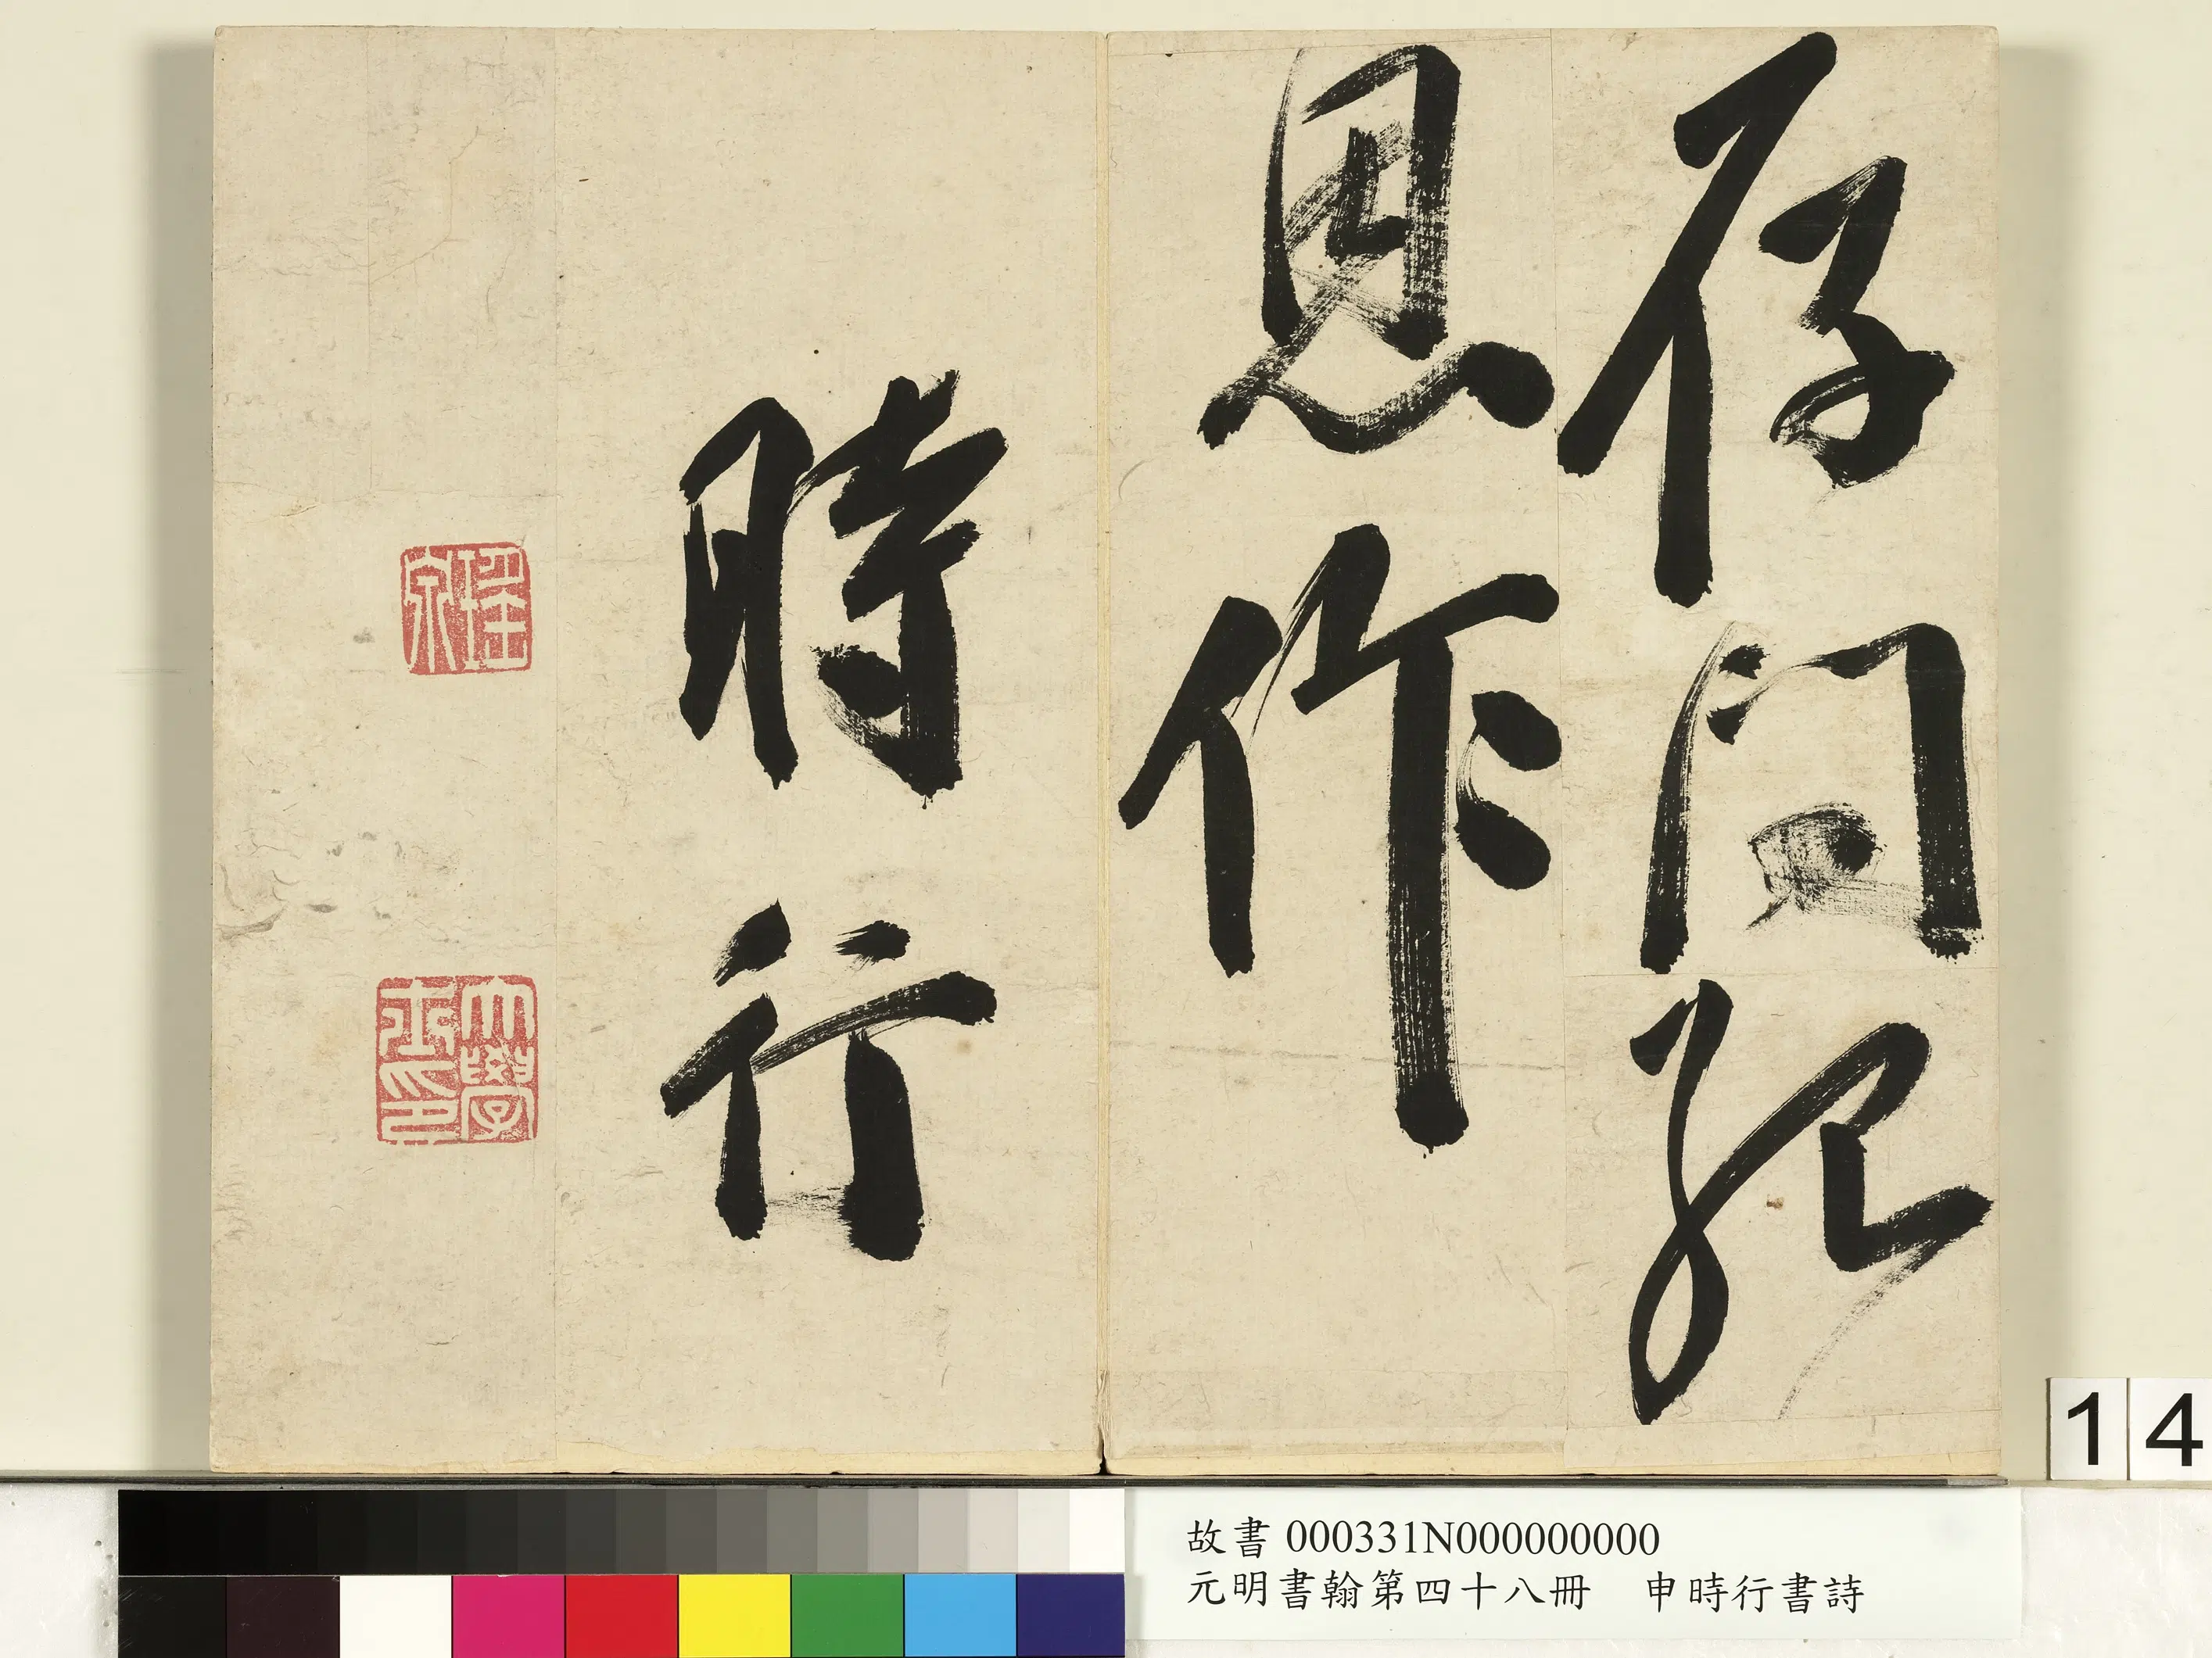 存問紀
恩作
時行
瑤泉
大學士印
14
故書 000331N000000000
元明書翰第四十八冊 申時行書詩